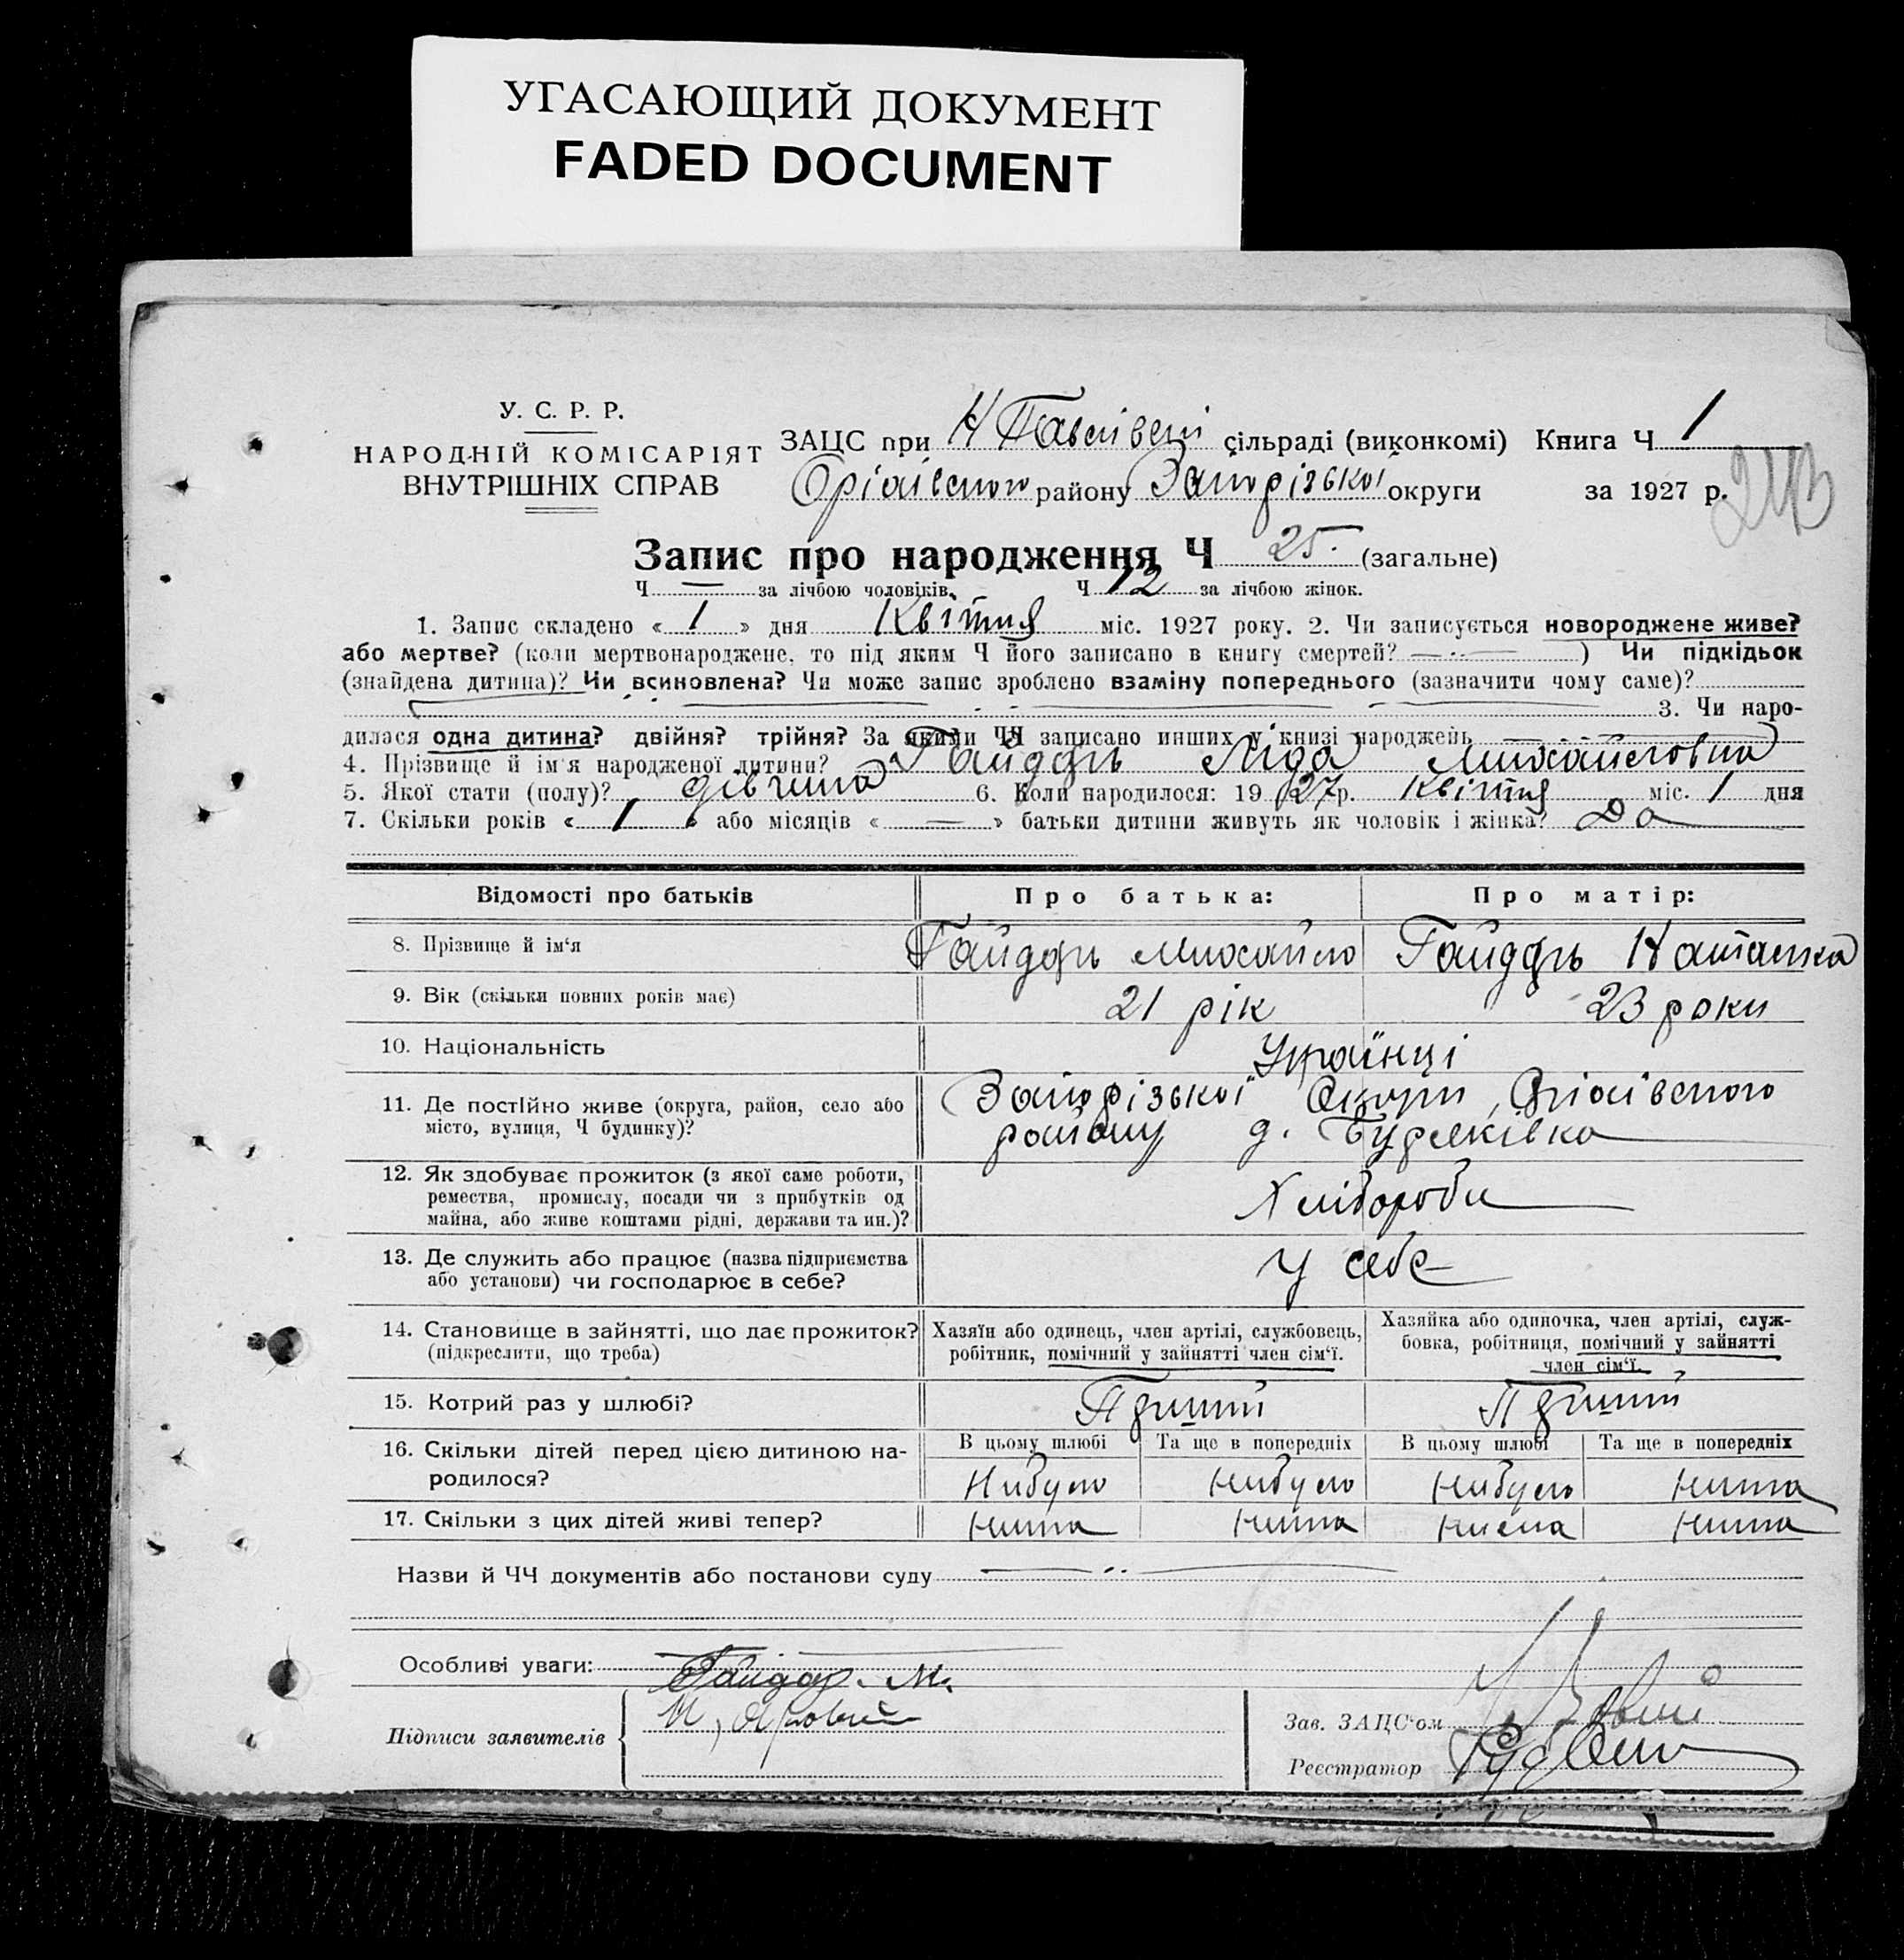 УГАСАЮЩИЙ ДОКУМЕНТ
FADED DOCUMENT
У. С. Р. Р.
НАРОДНІЙ КОМІСАРІЯТ
ВНУТРІШНІХ СПРАВ
ЗАЦС при Н Павлівські сільраді (виконкомі) Книга Ч 1
Оріхівського району Запорізької округи за 1927 р.
Запис про народження Ч 25. (загальне)
Ч — за лічбою чоловіків. Ч 12 за лічбою жінок.
1. Запис складено « 1 » дня Квітня міс. 1927 року. 2. Чи записується новороджене живе?
або мертве? (коли мертвонароджене, то під яким Ч його записано в книгу смертей? —··— ) Чи підкідьок
(знайдена дитина)? Чи всиновлена? Чи може запис зроблено взаміну попереднього (зазначити чому саме)?
3. Чи наро-
дилася одна дитина? двійня? трійня? За якими ЧЧ записано инших у книзі народжень
4. Прізвище й ім'я народженої дитини? Гайдарь Ліда Михайловна
5. Якої стати (полу)? дівчина 6. Коли народилося: 19 27 р. Квітня міс. 1 дня
7. Скільки років « 1 » або місяців « — » батьки дитини живуть як чоловік і жінка? Да
Відомості про батьків Про батька: Про матір:
8. Прізвище й ім'я Гайдарь Михайло Гайдарь Наталка
9. Вік (скільки повних років має) 21 рік 23 роки
10. Національність Українці
11. Де постійно живе (округа, район, село або
місто, вулиця, Ч будинку)?
Запорізької Округи, Оріхівського
району д. Бурлківка
12. Як здобуває прожиток (з якої саме роботи,
ремества, промислу, посади чи з прибутків од
майна, або живе коштами рідні, держави та ин.)?
Хлібороби
13. Де служить або працює (назва підприємства
або установи) чи господарює в себе?
У себе
14. Становище в зайнятті, що дає прожиток?
(підкреслити, що треба)
Хазяїн або одинець, член артілі, службовець,
робітник, помічний у зайнятті член сім'ї.
Хазяйка або одиночка, член артілі, служ-
бовка, робітниця, помічний у зайнятті
член сім'ї.
15. Котрий раз у шлюбі? Првий Првий
16. Скільки дітей перед цією дитиною на-
родилося?
В цьому шлюбі Та ще в попередніх В цьому шлюбі Та ще в попередніх
Нибуло Нибуло Нибуло Нима
17. Скільки з цих дітей живі тепер? Нима Нима Нима Нима
Назви й ЧЧ документів або постанови суду —··—
Особливі уваги:
Гайдар. М.
Підписи заявителів
Зав. ЗАЦС'ом
Реєстратор